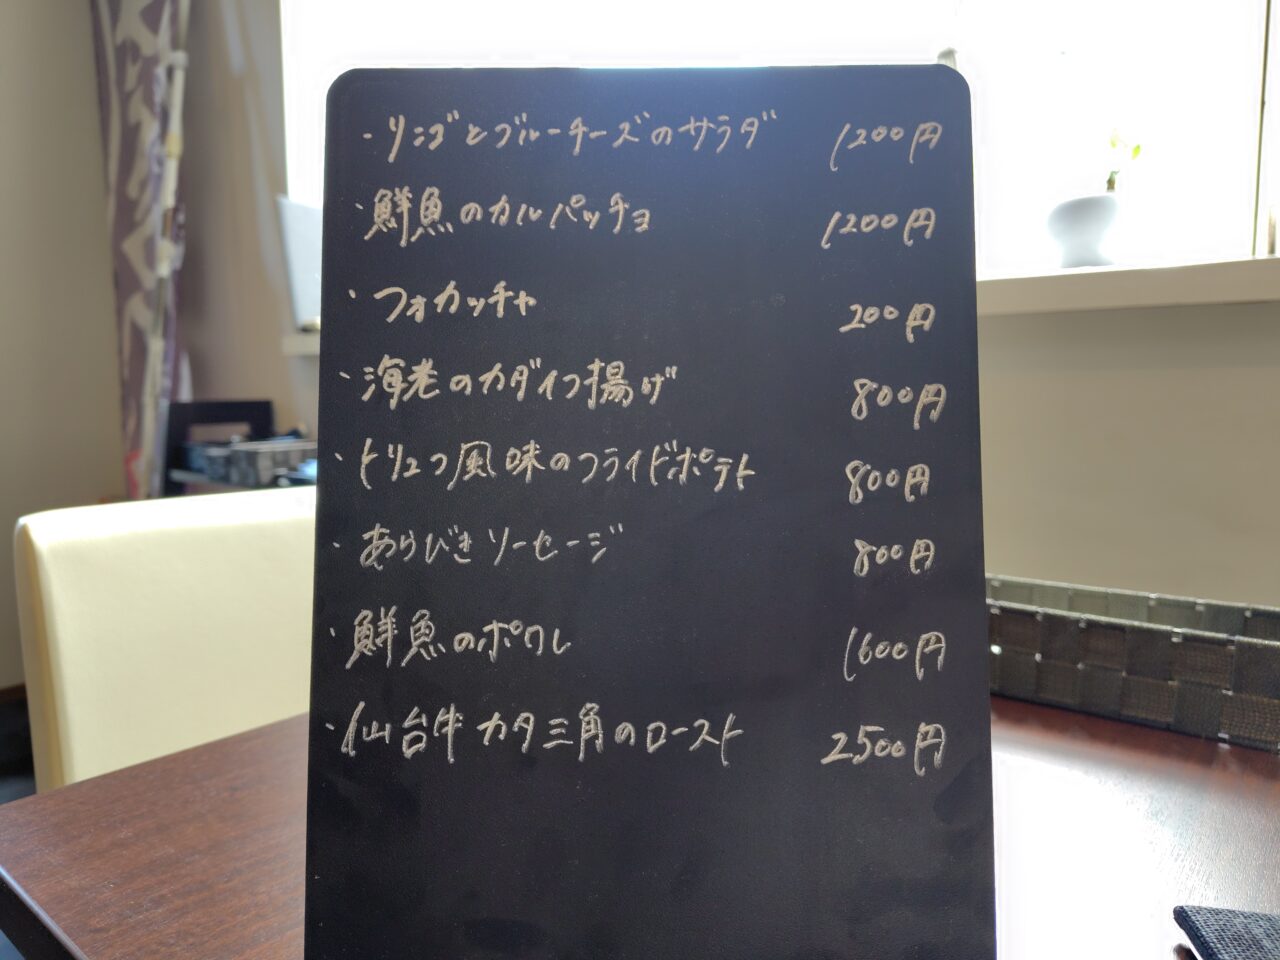 ・リンゴとブルーチーズのサラダ 1200円
・鮮魚のカルパッチョ 1200円
・フォカッチャ 200円
・海老のカダイフ揚げ 800円
・トリュフ風味のフライドポテト 800円
・あらびきソーセージ 800円
・鮮魚のポワレ 1600円
・仙台牛カタ三角のロースト 2500円